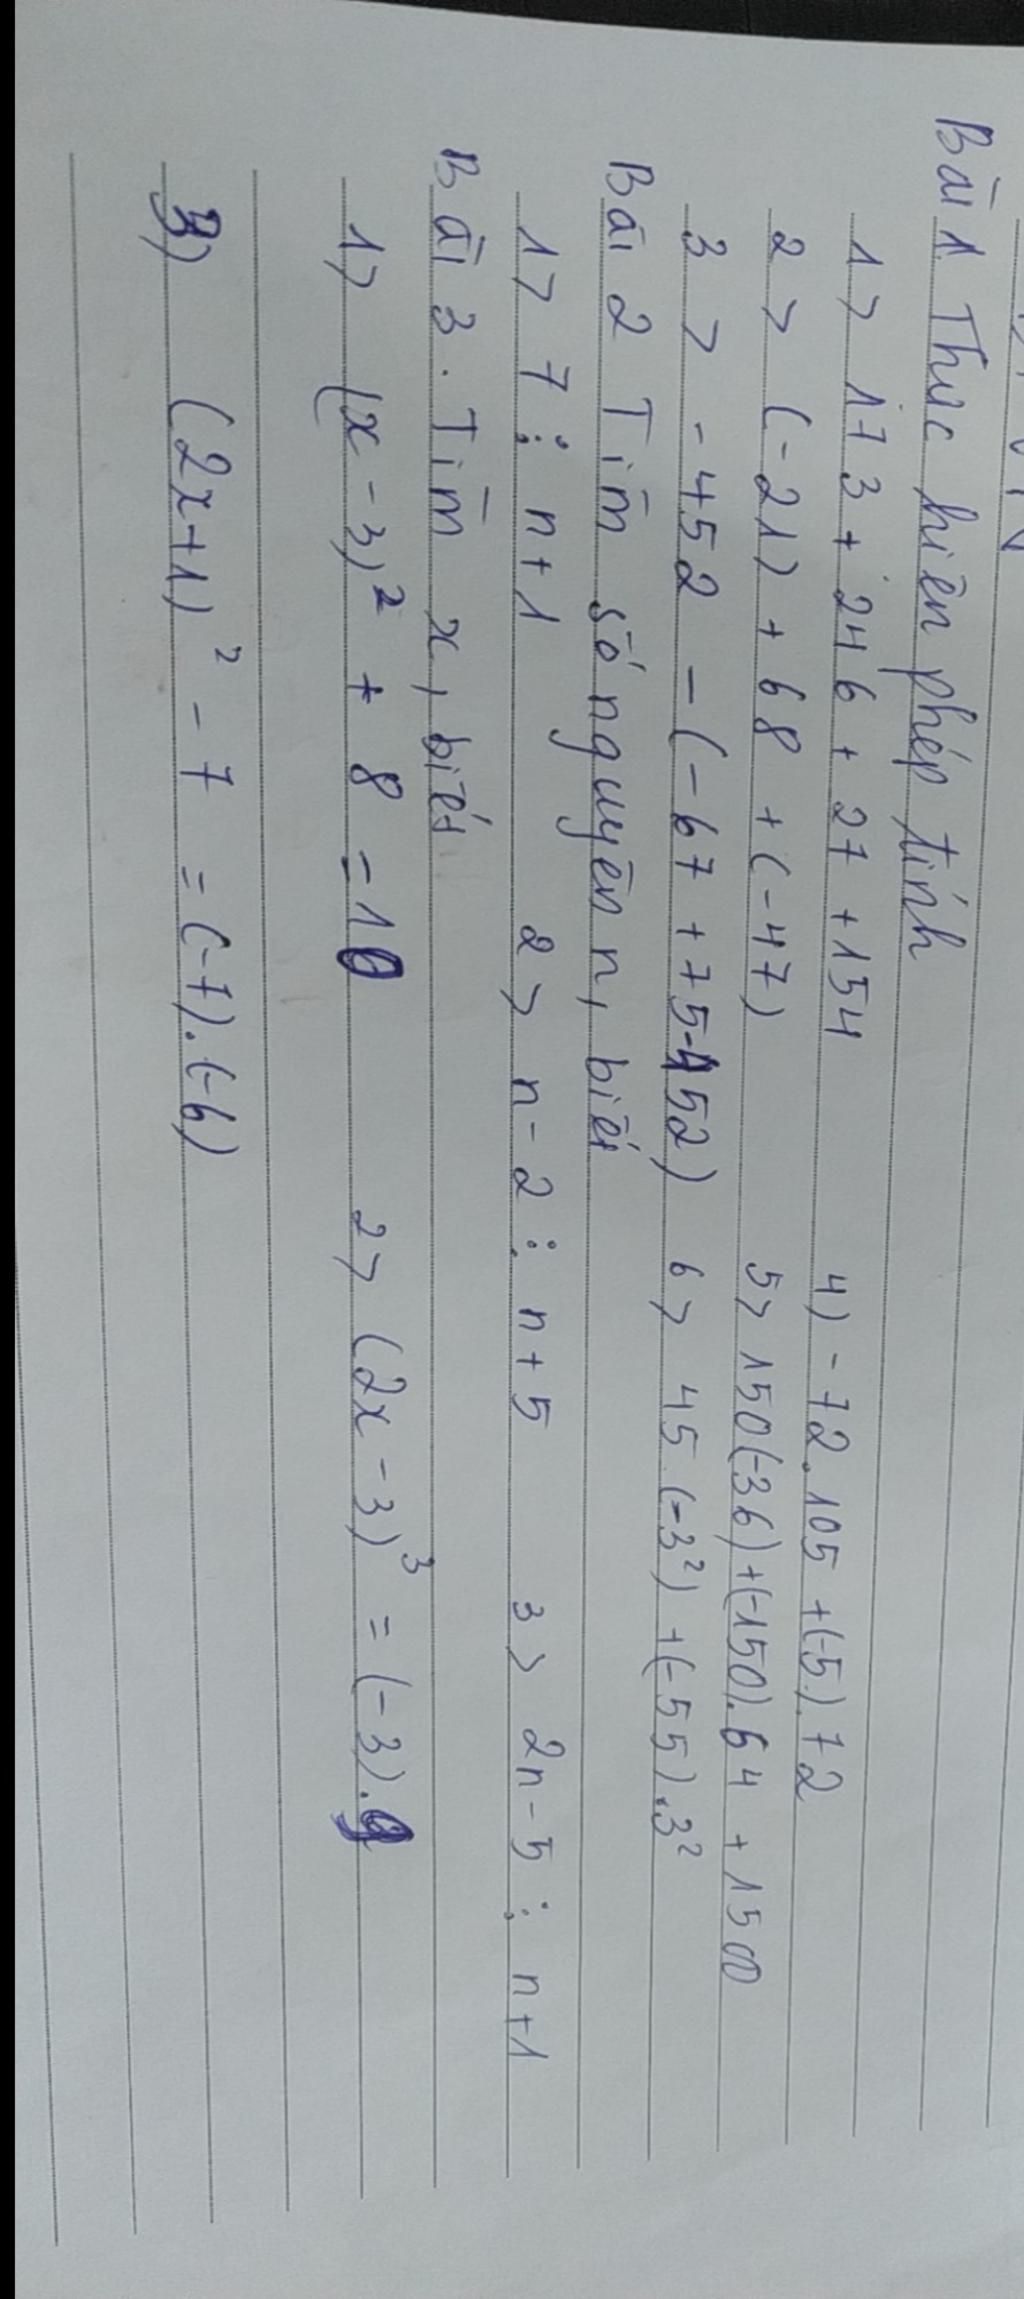 Bài 1. Thực hiện phép tính
1> 173 + 246 + 27 + 154 4) -72.105 + (-5).72
2> (-21) + 68 + (-47) 5> 150(-36) + (-150).64 + 1500
3> -452 - (-67 + 75 - 452) 6> 45.(-3²) + (-55).3²
Bài 2 Tìm số nguyên n, biết
1> 7 ⋮ n+1 2> n-2 ⋮ n+5 3> 2n-5 ⋮ n+1
Bài 3. Tìm x, biết
1> (x - 3)² + 8 = 10 2> (2x - 3)³ = (-3).9
3) (2x+1)² - 7 = (-7).(-6)